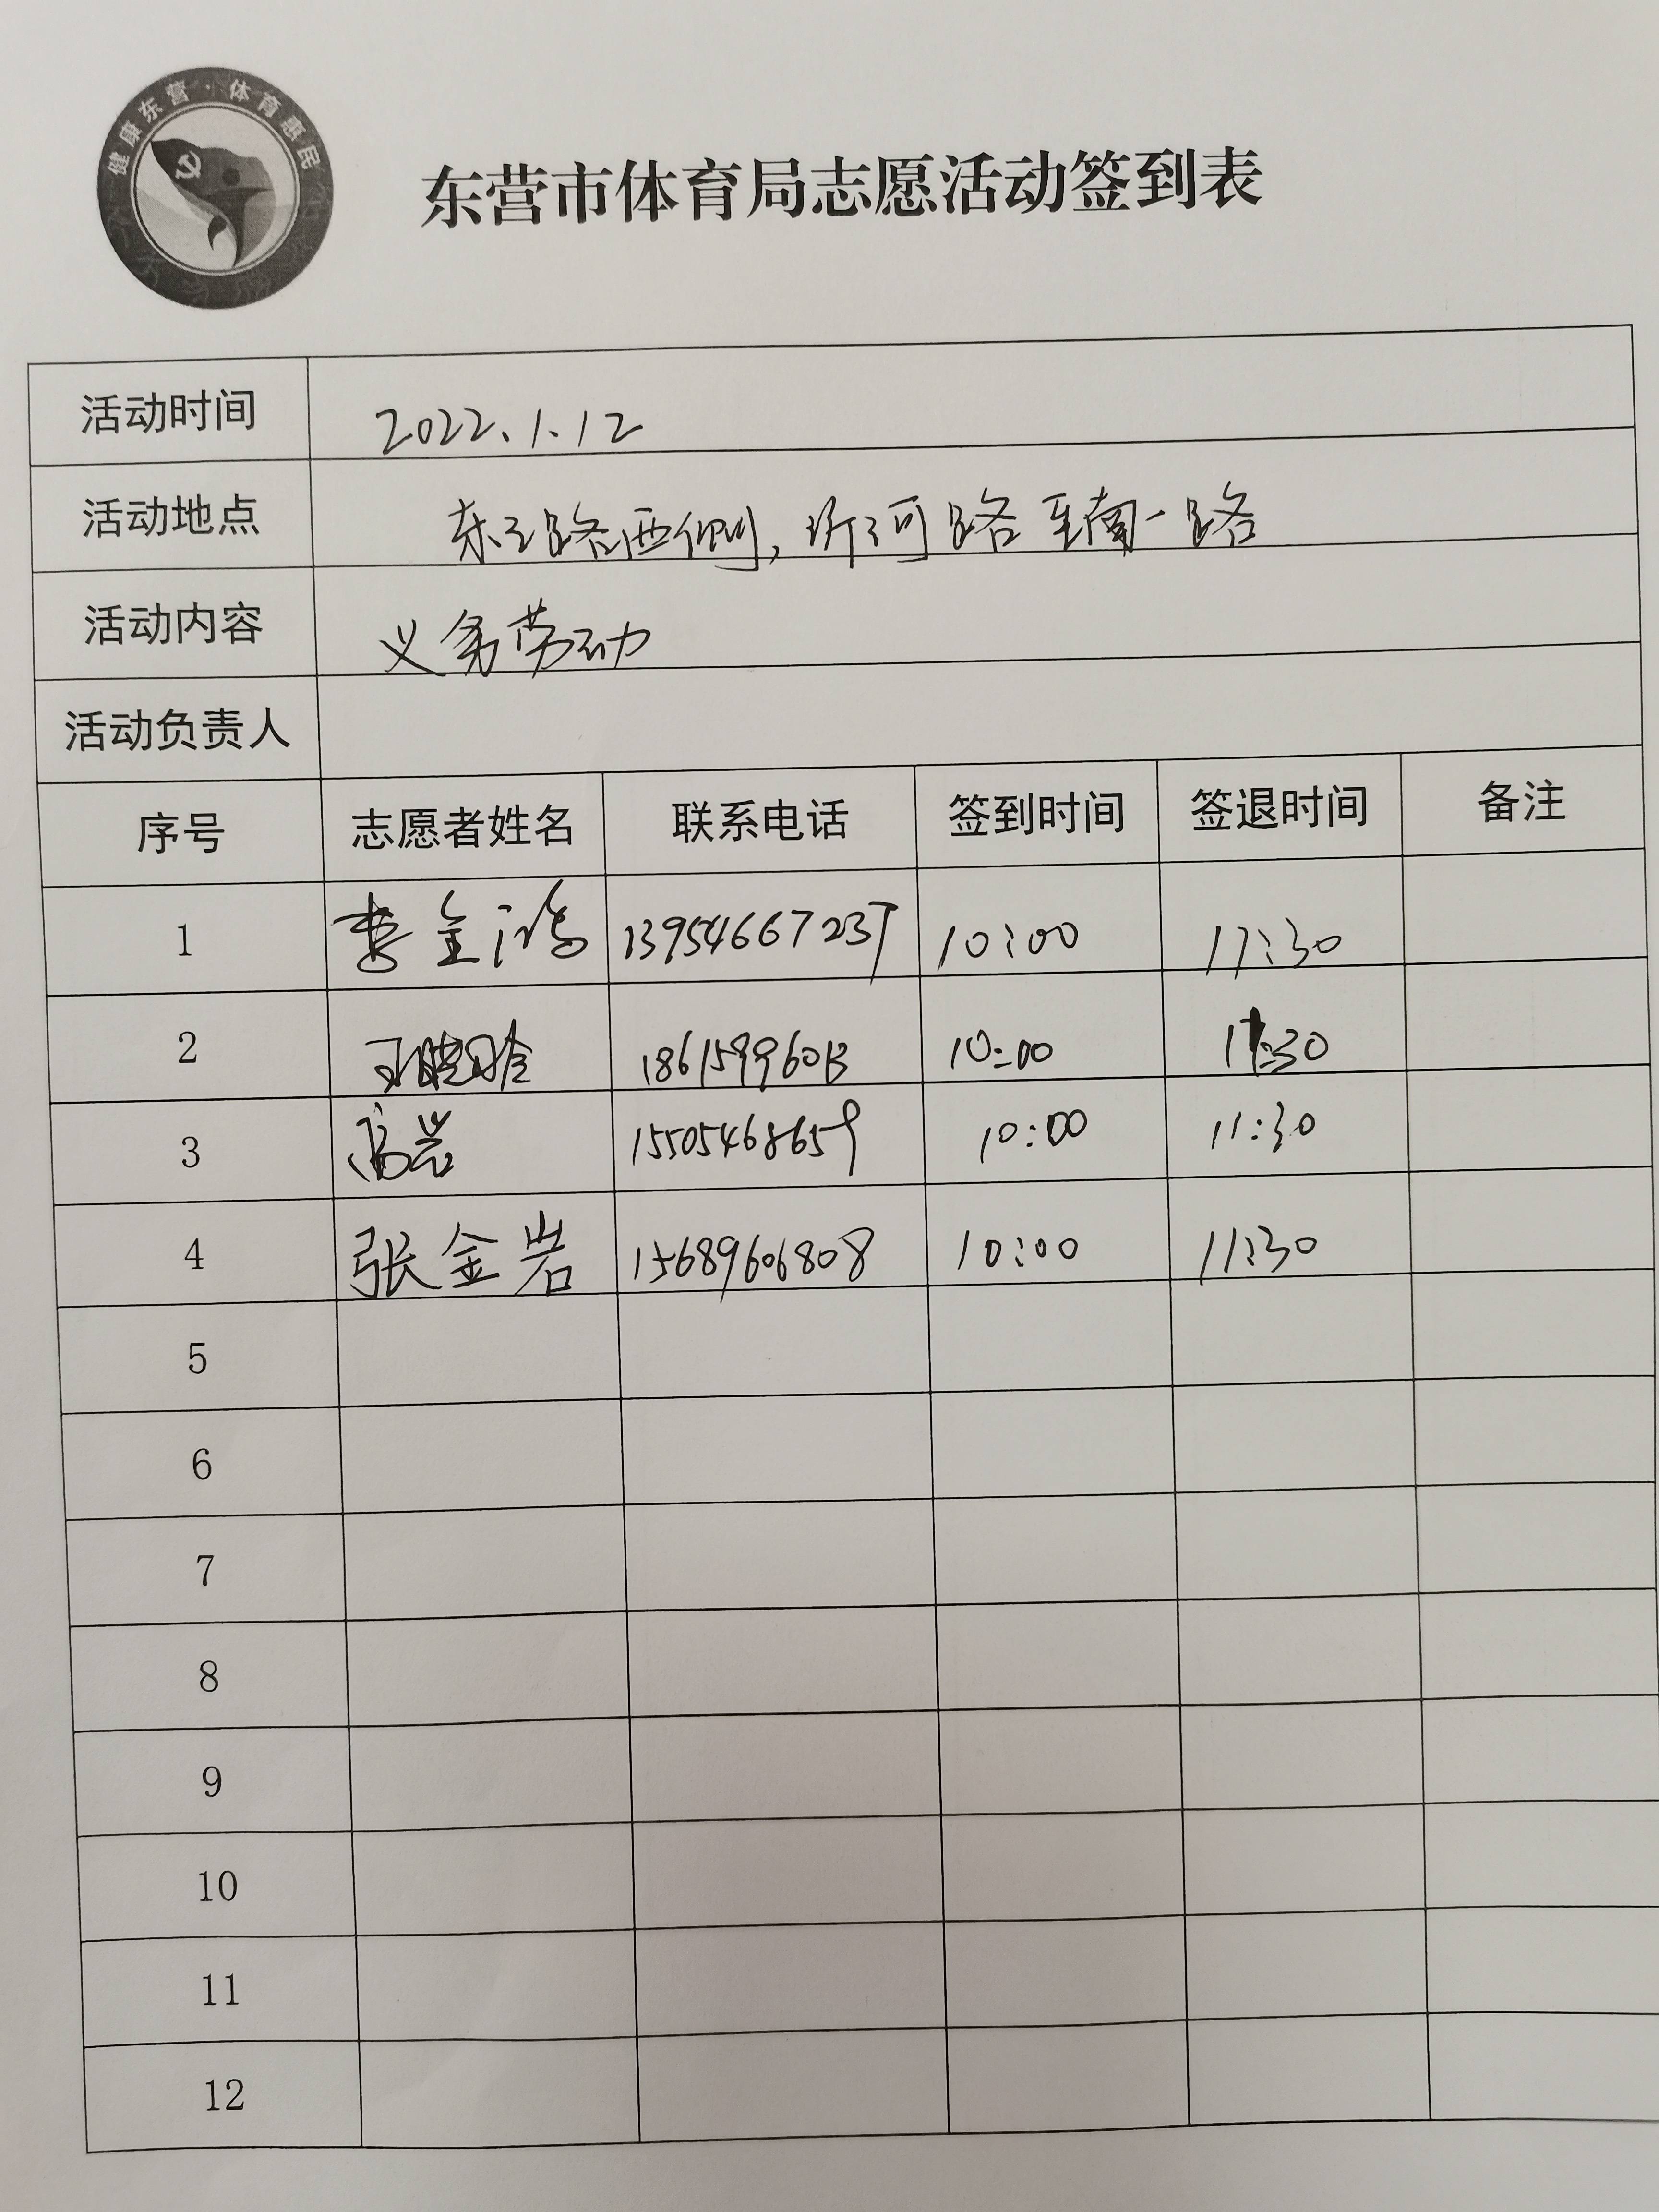 健康东营·体育惠民
东营市体育局志愿活动签到表
活动时间 2022.1.12
活动地点 东三路西侧,沂河路至南一路
活动内容 义务劳动
活动负责人
序号 志愿者姓名 联系电话 签到时间 签退时间 备注
1 李金鸿 13954667237 10:00 11:30
2 10:00 11:30
3 高岩 15505468659 10:00 11:30
4 张金岩 15689606808 10:00 11:30
5
6
7
8
9
10
11
12